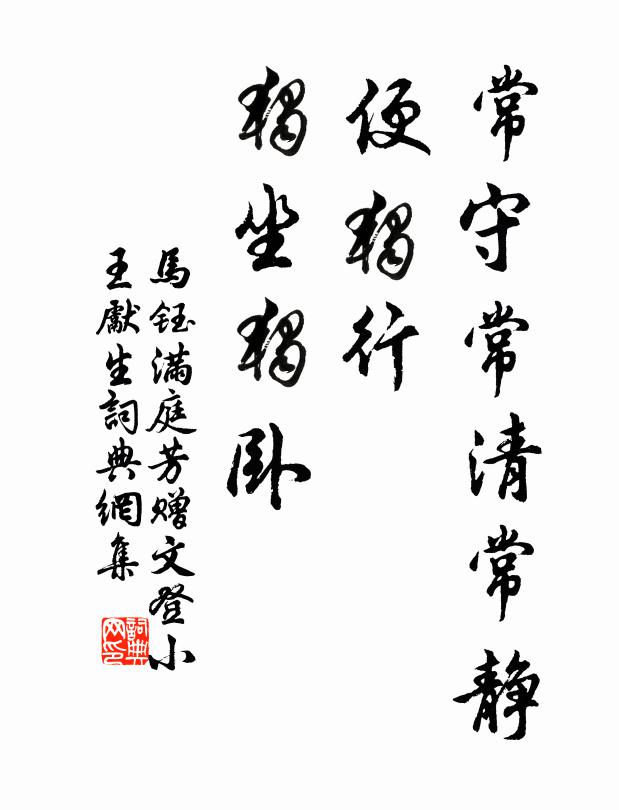 常守常清常静
便獨行
獨坐獨卧
馬鈺滿庭芳贈文登小
王獻生詞典網集
詞典网印